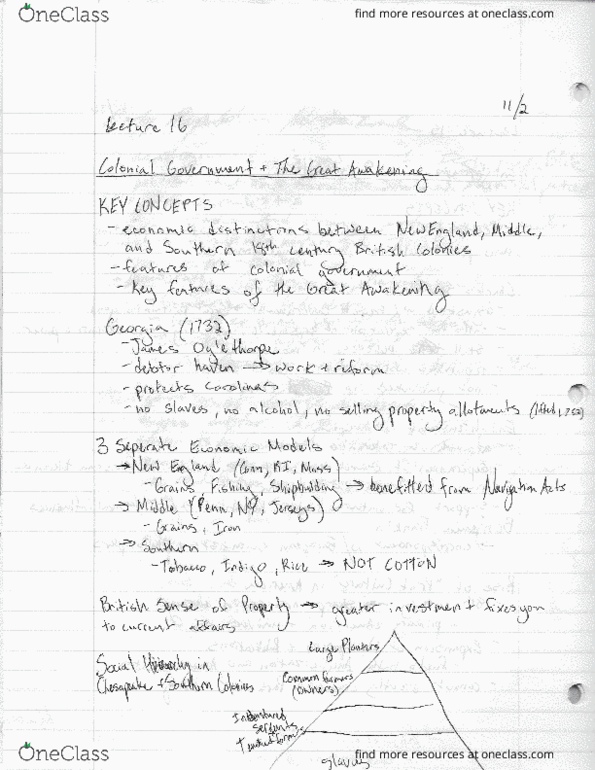 OneClass
find more resources at oneclass.com
11/2
Lecture 16
Colonial Government + The Great Awakening
KEY CONCEPTS
- economic distinctions between New England, Middle,
and Southern 18th century British Colonies
- features of colonial government
- key features of the Great Awakening
Georgia (1732)
- James Oglethorpe
- debtor haven → work + reform
- protects Carolinas
- no slaves, no alcohol, no selling property allotments (lifted 1752)
3 Seperate Economic Models
→ New England (Conn, RI, Mass)
- Grains, Fishing, Shipbuilding → benefitted from Navigation Acts
→ Middle (Penn, NY, Jerseys)
- Grains, Iron
→ Southern
- Tobacco, Indigo, Rice → NOT COTTON
British Sense of Property → greater investment + fixes you
to current affairs
Large Planters
Social Hierarchy in
Chesapeake + Southern Colonies
Common farmers
(owners)
Indentured
+ tenant farmers
slaves
OneClass
find more resources at oneclass.com